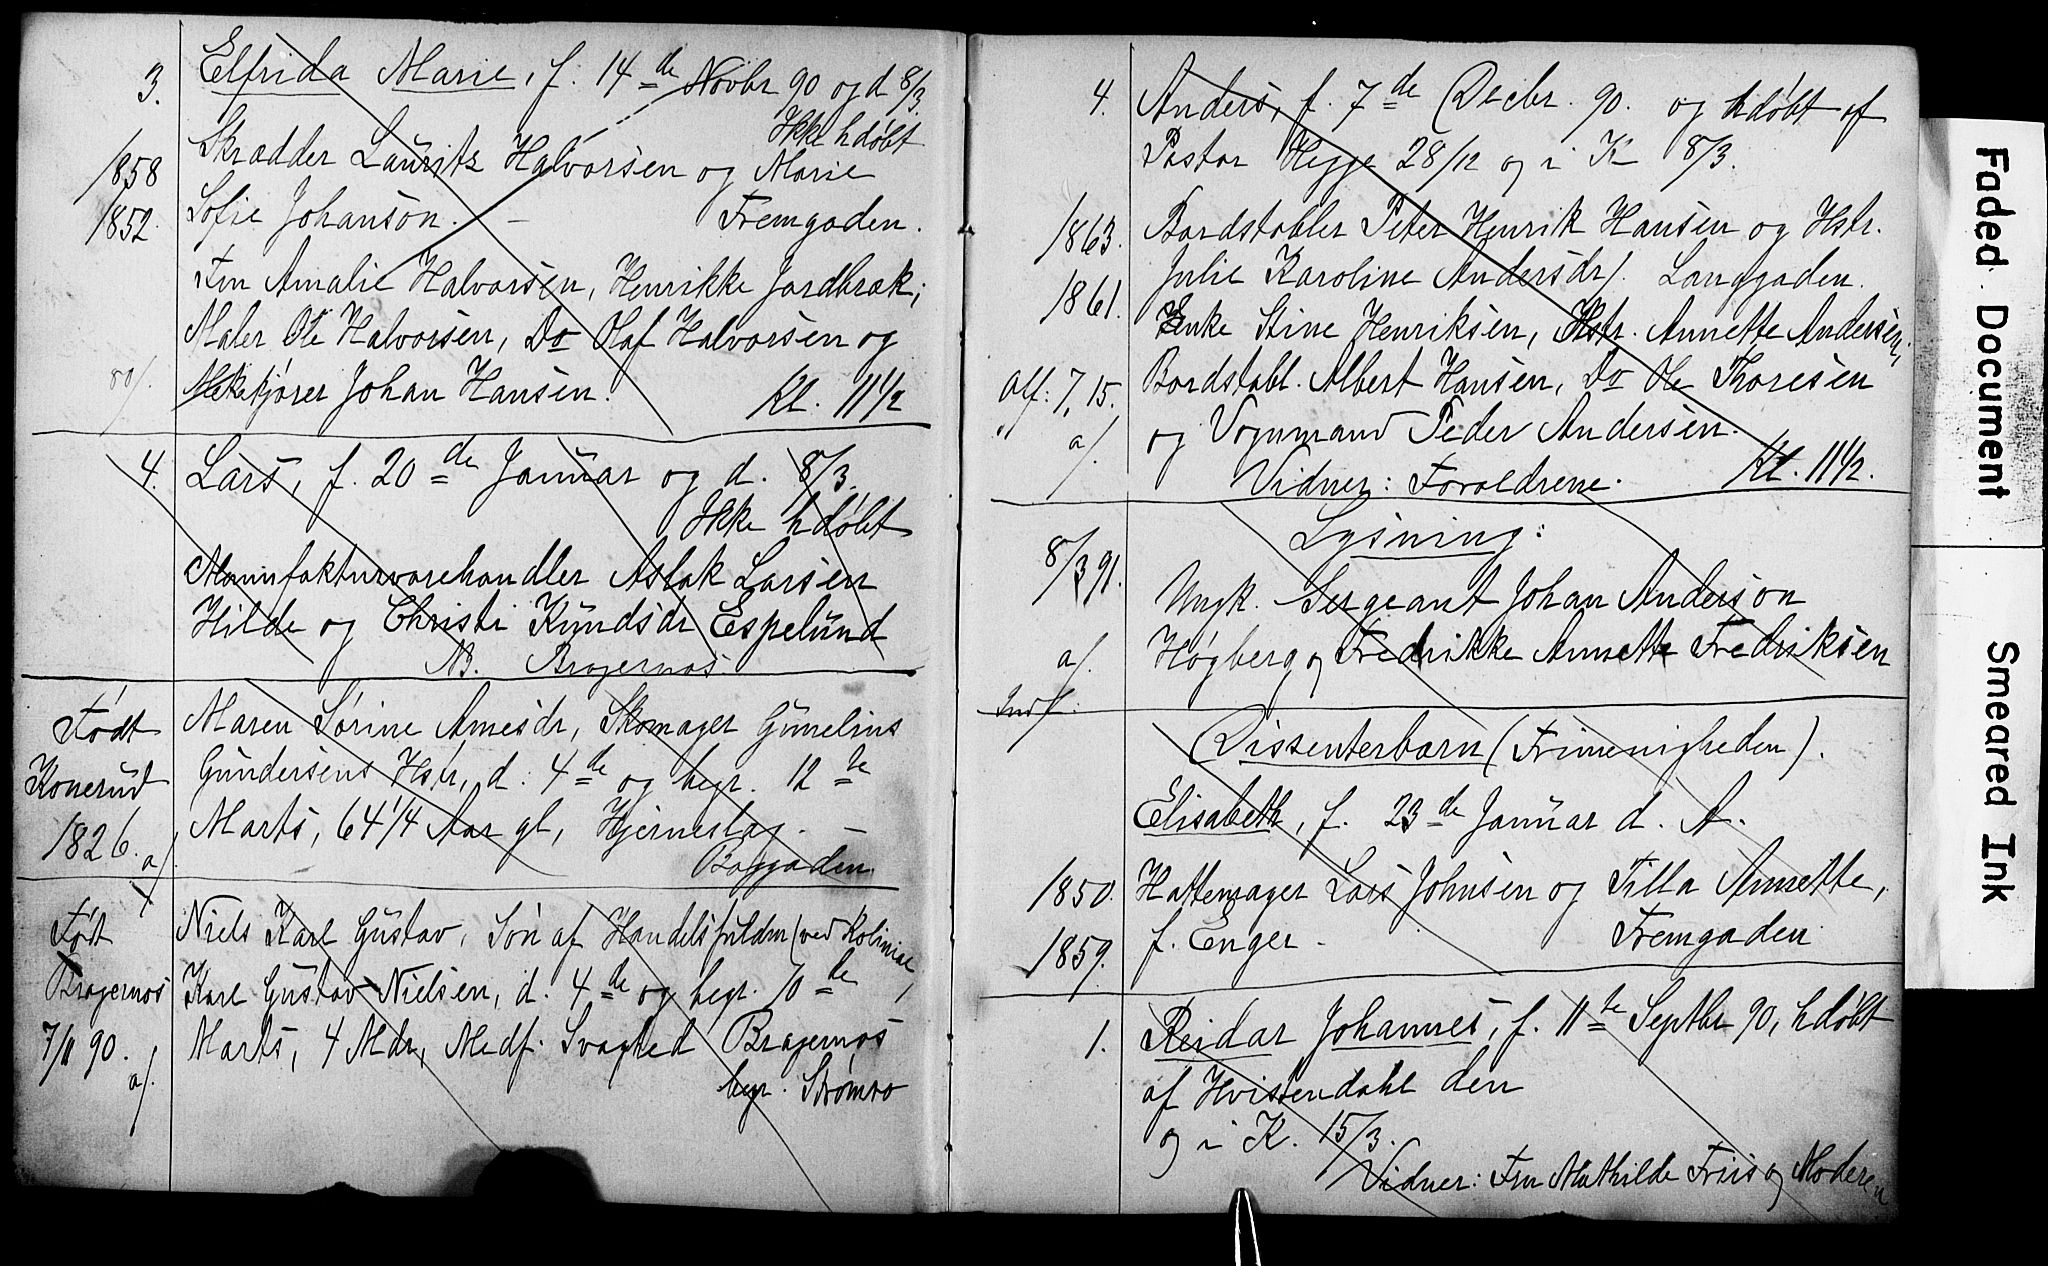 3. Elfrida Marie, f. 14de Novbr 90 og d 8/3.
Ikke hdøbt
1858 Skrædder Lauritz Halvorsen og Marie
1852. Sofie Johanson. – Fremgaden.
Fru Amalie Halvorsen, Henrikke Jordbræk;
Maler Ole Halvorsen, Do Olaf Halvorsen og
Johan Hansen. Kl. 11 1/2
4. Lars, f. 20de Januar og d. 8/3.
Ikke hdøbt
Manufakturvarehandler Aslak Larsen
Hilde og Christi Knudsdr Espelund
NB. Bragernæs.
Født Maren Sørine Arnesdr, Skomager Gunelius
Konerud Gundersens Hstr, d. 4de og begr. 12te
1826. a/. Marts, 64 1/4 Aar gl, Hjerneslag. –
Baggaden.
Født Niels Karl Gustav, Søn af Handelsfuldm (ved Kolonial
Bragernæs Karl Gustav Nielsen, d. 4de og begr. 10de
7/11 90. a/. Marts, 4 Mdr, Medf. Svaghed Bragernæs
begr. Strømsø
4. Anders, f. 7de Decbr. 90. og hdøbt af
Pastor Hegge 28/12 og i K 8/3.
1863. Bordstabler Peter Henrik Hansen og Hstr.
1861. Julie Karoline Andersdr/. Langgaden.
Enke Stine Henriksen, Hstr. Annette Andersen;
Off: 7,15. Bordstabl. Albert Hansen, Do Ole Thoresen
a/. og Vognmand Peder Andersen.
Vidner: Forældrene. Kl. 11 1/2.
Lysning:
8/3 91. Ungk. Sergeant Johan Anderson
a/. Høgberg og Fredrikke Annette Fredriksen
Indf:
Dissenterbarn (Frimenigheden).
Elisabeth, f. 23de Januar d. A.
1850. Hattemager Lars Johnsen og Tilla Annette,
1859. f. Enger. Fremgaden
1. Reidar Johannes, f. 11te Septbr 90, hdøbt
af Hvistendahl den
og i K. 15/3.
Vidner: Fru Mathilde Friis og Moderen
Faded Document
Smeared Ink